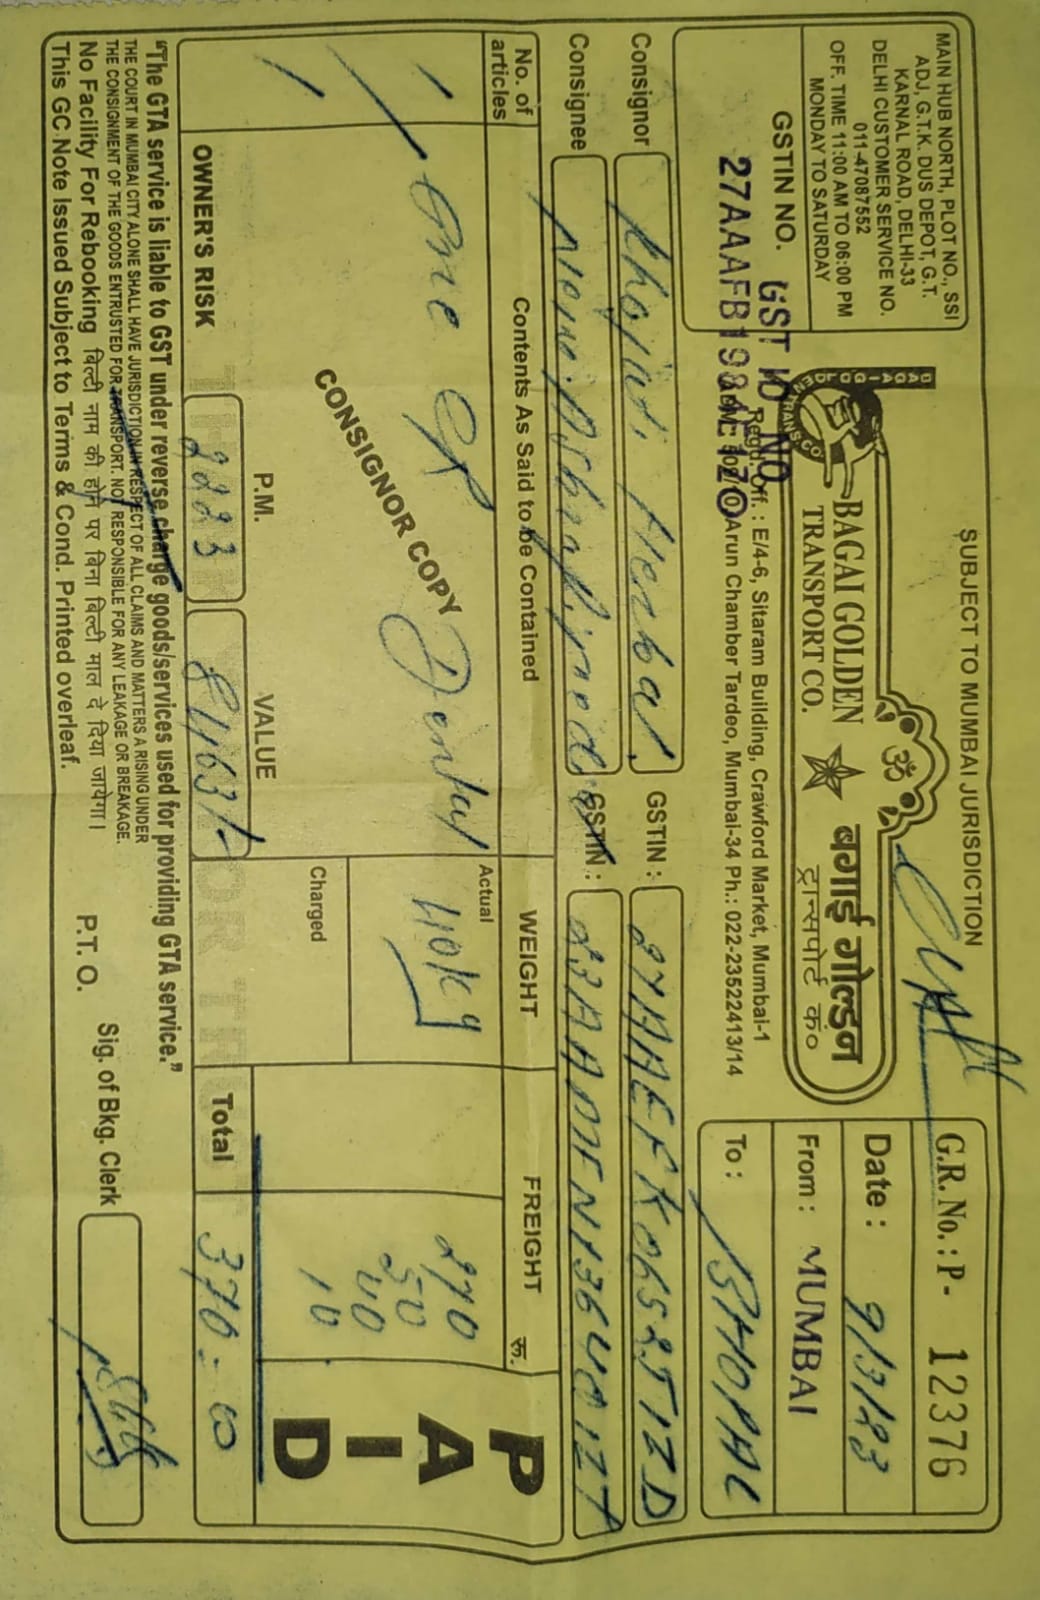 SUBJECT TO MUMBAI JURISDICTION
MAIN HUB NORTH, PLOT NO., SSI
ADJ, G.T.K. DUS DEPOT, G.T.
KARNAL ROAD, DELHI-33
DELHI CUSTOMER SERVICE NO.
011-47087552
OFF. TIME 11:00 AM TO 06:00 PM
MONDAY TO SATURDAY
GSTIN NO.
GST ID NO
BAGAI GOLDEN
TRANSPORT CO.
ॐ
बगाई गोल्डन
ट्रान्सपोर्ट कं०
Regd. Off. : E/4-6, Sitaram Building, Crawford Market, Mumbai-1
Arun Chamber Tardeo, Mumbai-34 Ph.: 022-23522413/14
G.R. No. : P- 12376
Date : 9/3/23
From : MUMBAI
To : BHOPAL
Consignor
Herbal
GSTIN :
Consignee
GSTIN :
No. of
articles
Contents As Said to be Contained
WEIGHT
FREIGHT
रू.
One
Dental
CONSIGNOR COPY
Actual
40kg
Charged
270
50
40
10
PAID
P.M.
VALUE
OWNER'S RISK
2223
8463/-
Total
370-00
"The GTA service is liable to GST under reverse charge goods/services used for providing GTA service."
THE COURT IN MUMBAI CITY ALONE SHALL HAVE JURISDICTION IN RESPECT OF ALL CLAIMS AND MATTERS A RISING UNDER
THE CONSIGNMENT OF THE GOODS ENTRUSTED FOR TRANSPORT. NOT RESPONSIBLE FOR ANY LEAKAGE OR BREAKAGE.
No Facility For Rebooking बिल्टी नाम की होने पर बिना बिल्टी माल दे दिया जायेगा।
This GC Note Issued Subject to Terms & Cond. Printed overleaf.
P.T.O.
Sig. of Bkg. Clerk